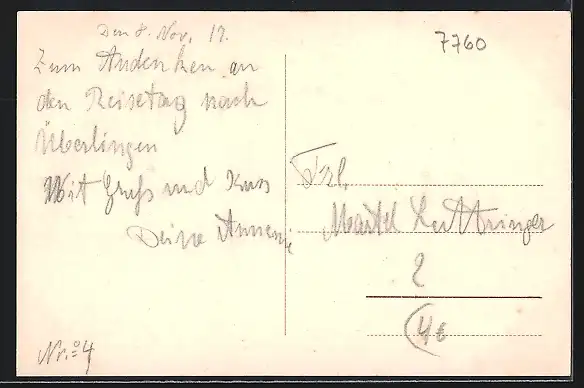 Den 8. Nov. 17.
7760
Zum Andenken an
den Reisetag nach
Überlingen
Mit Gruß und Kuss
Deine Annemie
Frl.
Martel Luttringer
2
(4e
Nr. 4